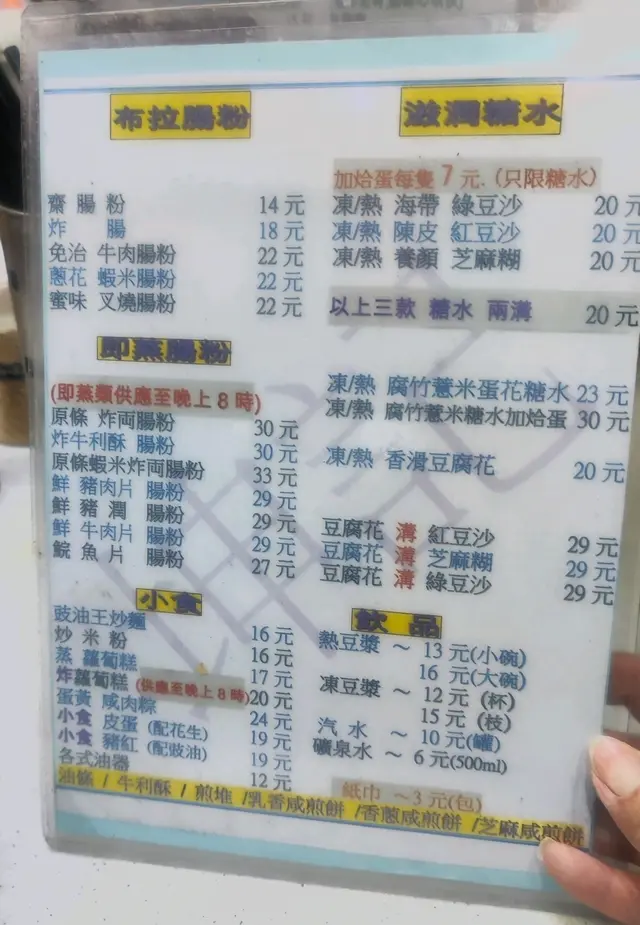 布拉腸粉
齋腸粉 14元
炸腸 18元
免治 牛肉腸粉 22元
蔥花 蝦米腸粉 22元
蜜味 叉燒腸粉 22元
即蒸腸粉
(即蒸類供應至晚上8時)
原條 炸両腸粉 30元
炸牛利酥 腸粉 30元
原條蝦米炸両腸粉 33元
鮮 豬肉片 腸粉 29元
鮮 豬潤 腸粉 29元
鮮 牛肉片 腸粉 29元
鯇魚片 腸粉 27元
小食
豉油王炒麵 16元
炒米粉 16元
蒸 蘿蔔糕 17元
炸蘿蔔糕 (供應至晚上8時) 20元
蛋黃 咸肉粽 24元
小食 皮蛋 (配花生) 19元
小食 豬紅 (配豉油) 19元
各式油器 12元
油條 / 牛利酥 / 煎堆 /乳香咸煎餅 /香蔥咸煎餅 /芝麻咸煎餅
滋潤糖水
加烚蛋每隻 7元. (只限糖水)
凍/熱 海帶 綠豆沙 20元
凍/熱 陳皮 紅豆沙 20元
凍/熱 養顏 芝麻糊 20元
以上三款 糖水 兩溝 20元
凍/熱 腐竹薏米蛋花糖水 23元
凍/熱 腐竹薏米糖水加烚蛋 30元
凍/熱 香滑豆腐花 20元
豆腐花 溝 紅豆沙 29元
豆腐花 溝 芝麻糊 29元
豆腐花 溝 綠豆沙 29元
飲品
熱豆漿 ~ 13元(小碗)
16元(大碗)
凍豆漿 ~ 12元 (杯)
15元 (枝)
汽水 ~ 10元(罐)
礦泉水 ~ 6元(500ml)
紙巾 ~3元(包)